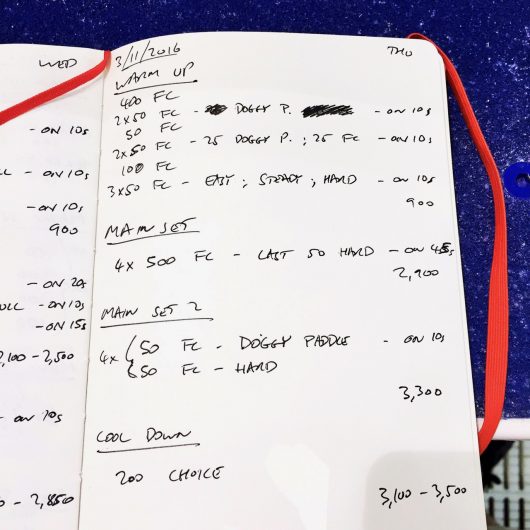 WED
- ON 10s
- ON 10s
- ON 10s
900
- ON 20s
- ON 10s
- ON 15s
- 2,500
- ON 10s
- 2,850
3/11/2016 THU
WARM UP
400 FC
2x50 FC - DOGGY P. - ON 10s
50 FC
2x50 FC - 25 DOGGY P. ; 25 FC - ON 10s
100 FC
3x50 FC - EASY ; STEADY ; HARD - ON 10s
900
MAIN SET
4x 500 FC - LAST 50 HARD - ON 45s
2,900
MAIN SET 2
4x { 50 FC - DOGGY PADDLE - ON 10s
50 FC - HARD
3,300
COOL DOWN
200 CHOICE
3,100 - 3,500